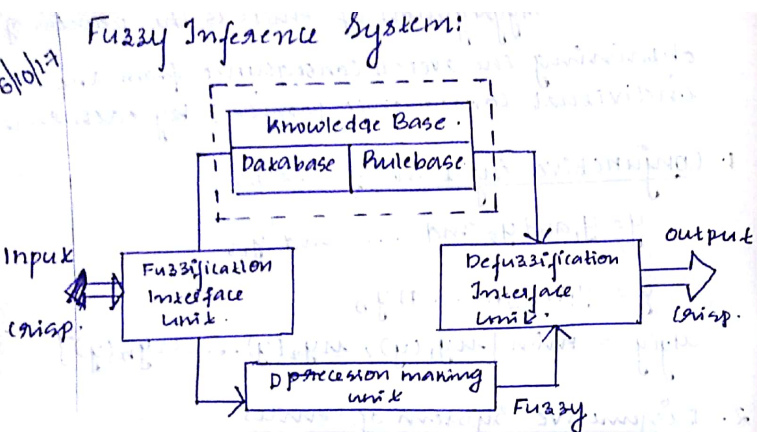 6/10/17
Fuzzy Inference System:
Knowledge Base.
Database Rulebase
Input
Crisp.
Fuzzification
Interface
unit.
Defuzzification
Interface
Unit.
Output
Crisp.
making
unit
Fuzzy